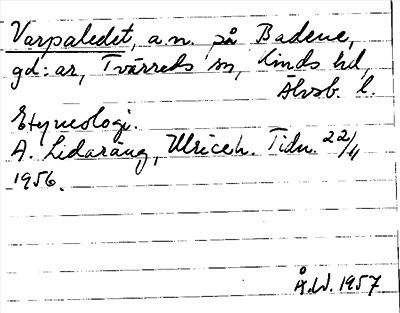 Varpaledet, a.n. på Badene,
gd:ar, Tvärreds sn, Kinds hd,
Älvsb. l.
Etymologi.
A. Lidaräng, Ulriceh. Tidn. 22/4
1956.
Å.W. 1957